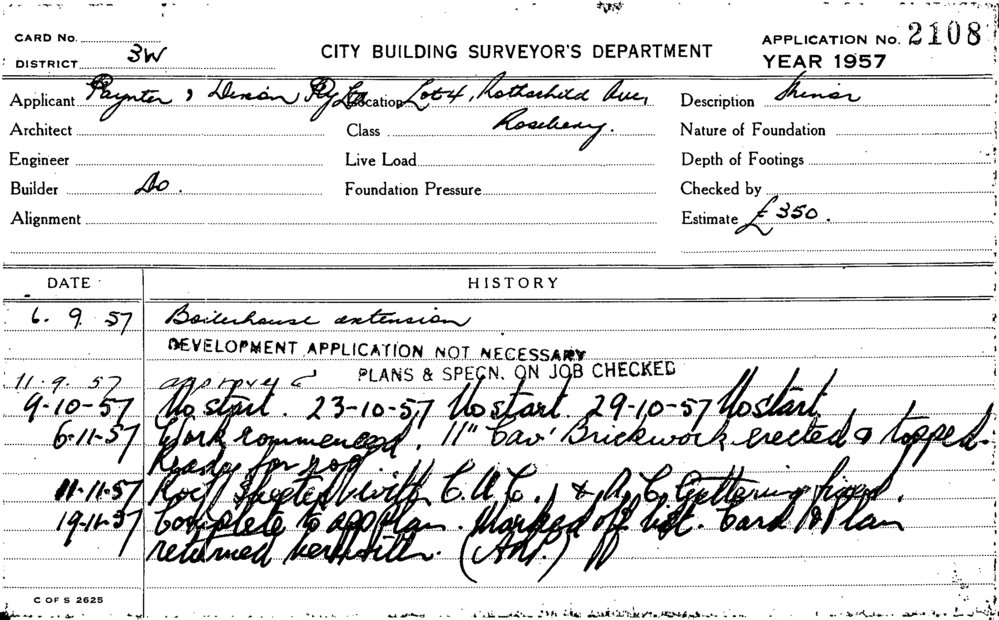 CARD No.
DISTRICT 3W
CITY BUILDING SURVEYOR'S DEPARTMENT
APPLICATION No. 2108
YEAR 1957
Applicant Paynter & Dixon Pty Ltd Location Lot 4, Rothschild Ave, Description Minor
Architect Class Rosebery. Nature of Foundation
Engineer Live Load Depth of Footings
Builder Do. Foundation Pressure Checked by
Alignment Estimate £350.
DATE HISTORY
6. 9. 57 Boilerhouse extension
DEVELOPMENT APPLICATION NOT NECESSARY
PLANS & SPECN. ON JOB CHECKED
11. 9. 57 approved
9-10-57 No start. 23-10-57 No start. 29-10-57 No start.
6-11-57 Work commenced. 11" Cav' Brickwork erected & topped
Ready for roof.
11-11-57 Roof sheeted with C.A.C., & A.C. Guttering fixed.
19-11-57 Complete to app Plan. Marked off list. Card & Plan
returned herewith.
C OF S 2625